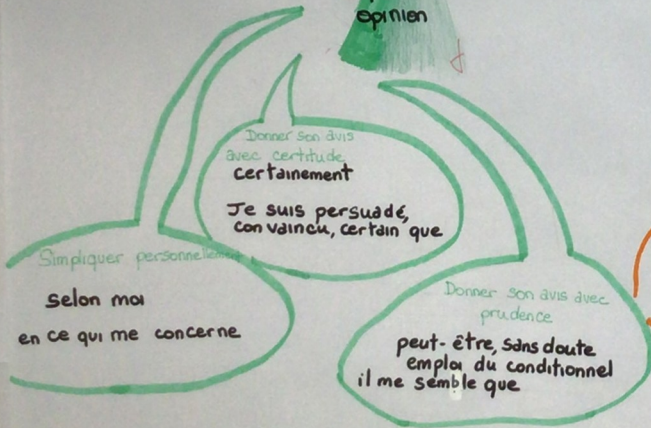 opinion
Donner son avis
avec certitude
certainement
Je suis persuadé,
convaincu, certain que
Simpliquer personnellement
selon moi
en ce qui me concerne
Donner son avis avec
prudence
peut-être, sans doute
emploi du conditionnel
il me semble que